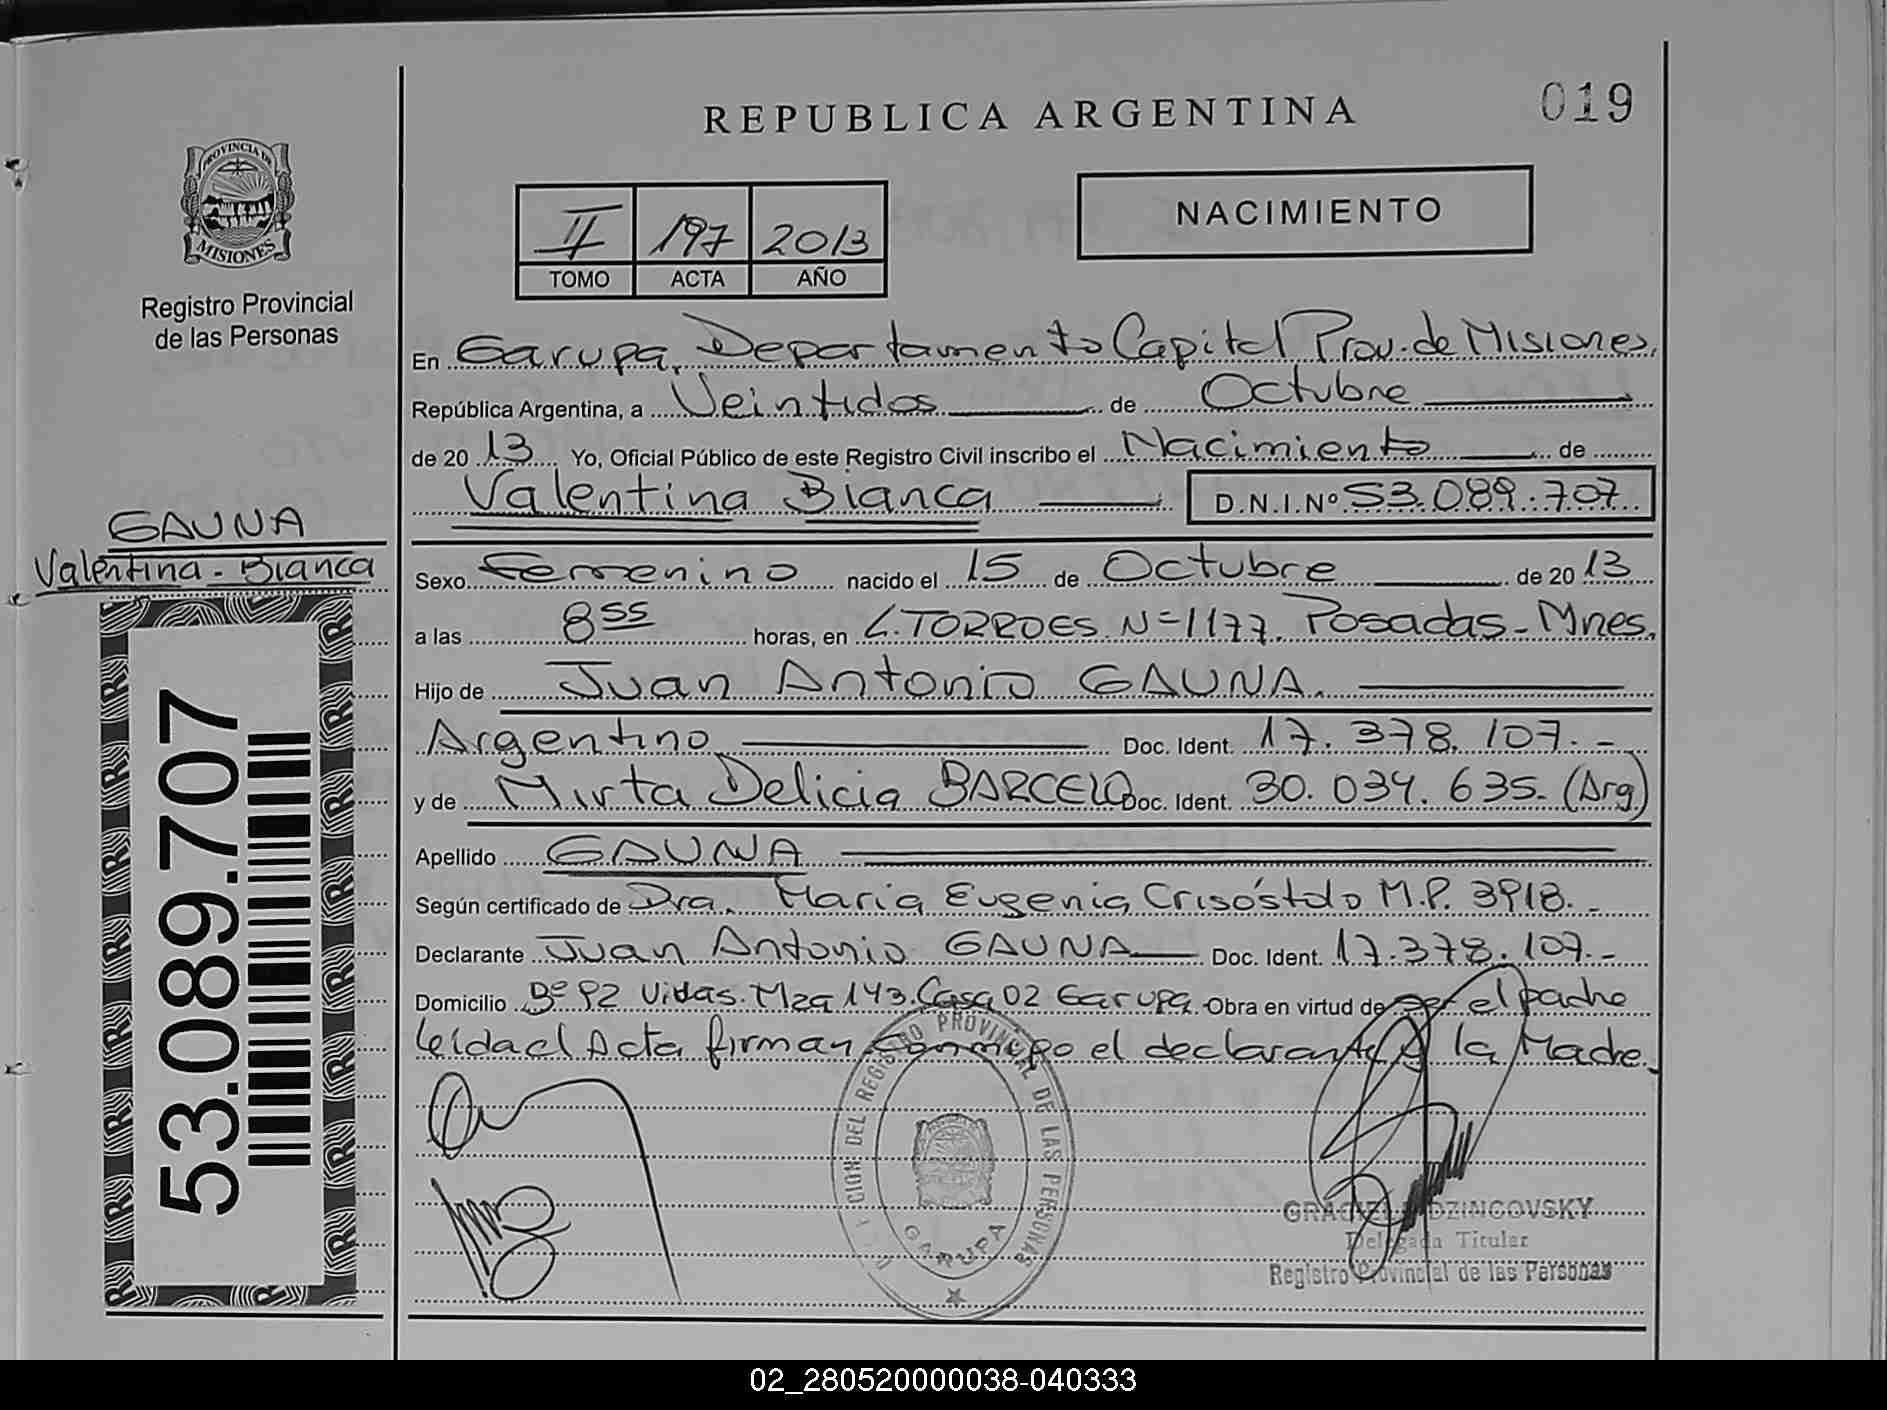 REPUBLICA ARGENTINA
019
PROVINCIA DE
MISIONES
Registro Provincial
de las Personas
II 197 2013
TOMO ACTA AÑO
NACIMIENTO
En Garupa, Departamento Capital Prov. de Misiones.
República Argentina, a Veintidos de Octubre
de 2013 Yo, Oficial Público de este Registro Civil inscribo el Nacimiento de
Valentina Bianca D.N.I.Nº 53.089.707
GAUNA
Valentina - Bianca
53.089.707
Sexo Femenino nacido el 15 de Octubre de 2013
a las 8 55 horas, en L. TORRES Nº 1177. Posadas - Mnes.
Hijo de Juan Antonio GAUNA.
Argentino Doc. Ident. 17.378.107.-
y de Mirta Delicia BARCELO Doc. Ident. 30.034.635. (Arg)
Apellido GAUNA
Según certificado de Dra. Maria Eugenia Crisóstolo M.P. 3918.-
Declarante Juan Antonio GAUNA Doc. Ident. 17.378.107.-
Domicilio Bº 92 Vidas. Mza 143. Casa 02 Garupa. Obra en virtud de ser el padre
Leida el Acta firman conmigo el declarante y la Madre.
DEL REGISTRO PROVINCIAL DE LAS PERSONAS
GARUPA
Delegada Titular
Registro Provincial de las Personas
02_280520000038-040333